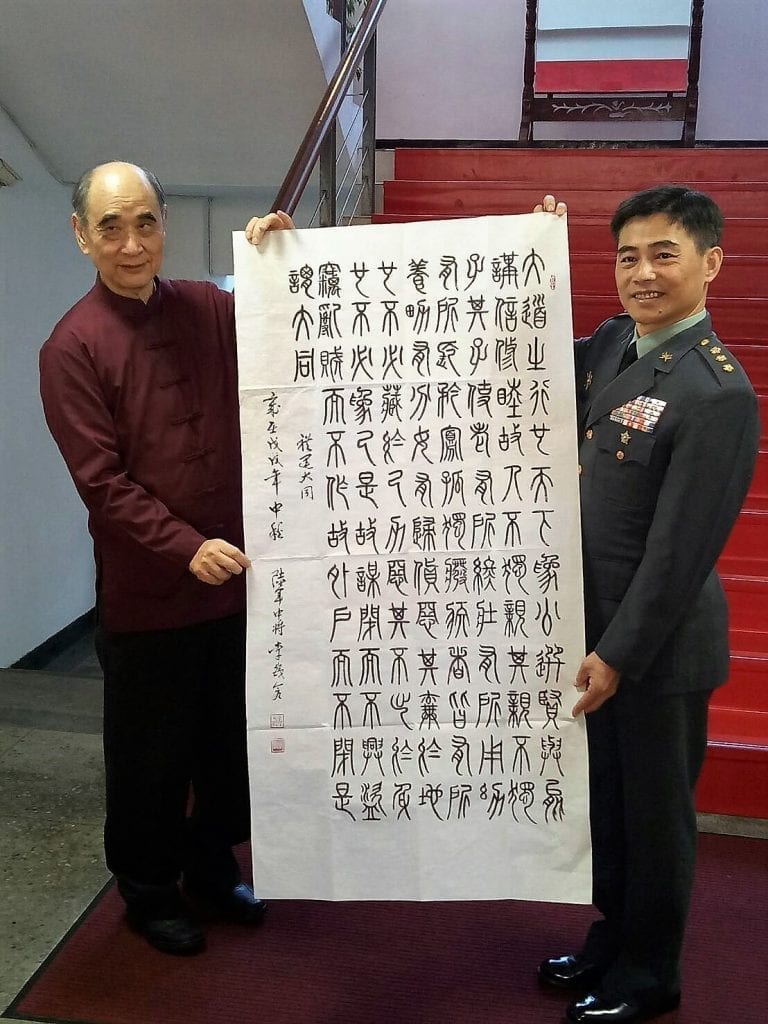 大道之行也天下為公選賢與能
講信修睦故人不獨親其親不獨
子其子使老有所終壯有所用幼
有所長矜寡孤獨廢疾者皆有所
養男有分女有歸貨惡其棄於地
也不必藏於己力惡其不出於身
也不必為己是故謀閉而不興盜
竊亂賊而不作故外戶而不閉是
謂大同
禮運大同
歲在戊戌年中秋 陸軍中將 李